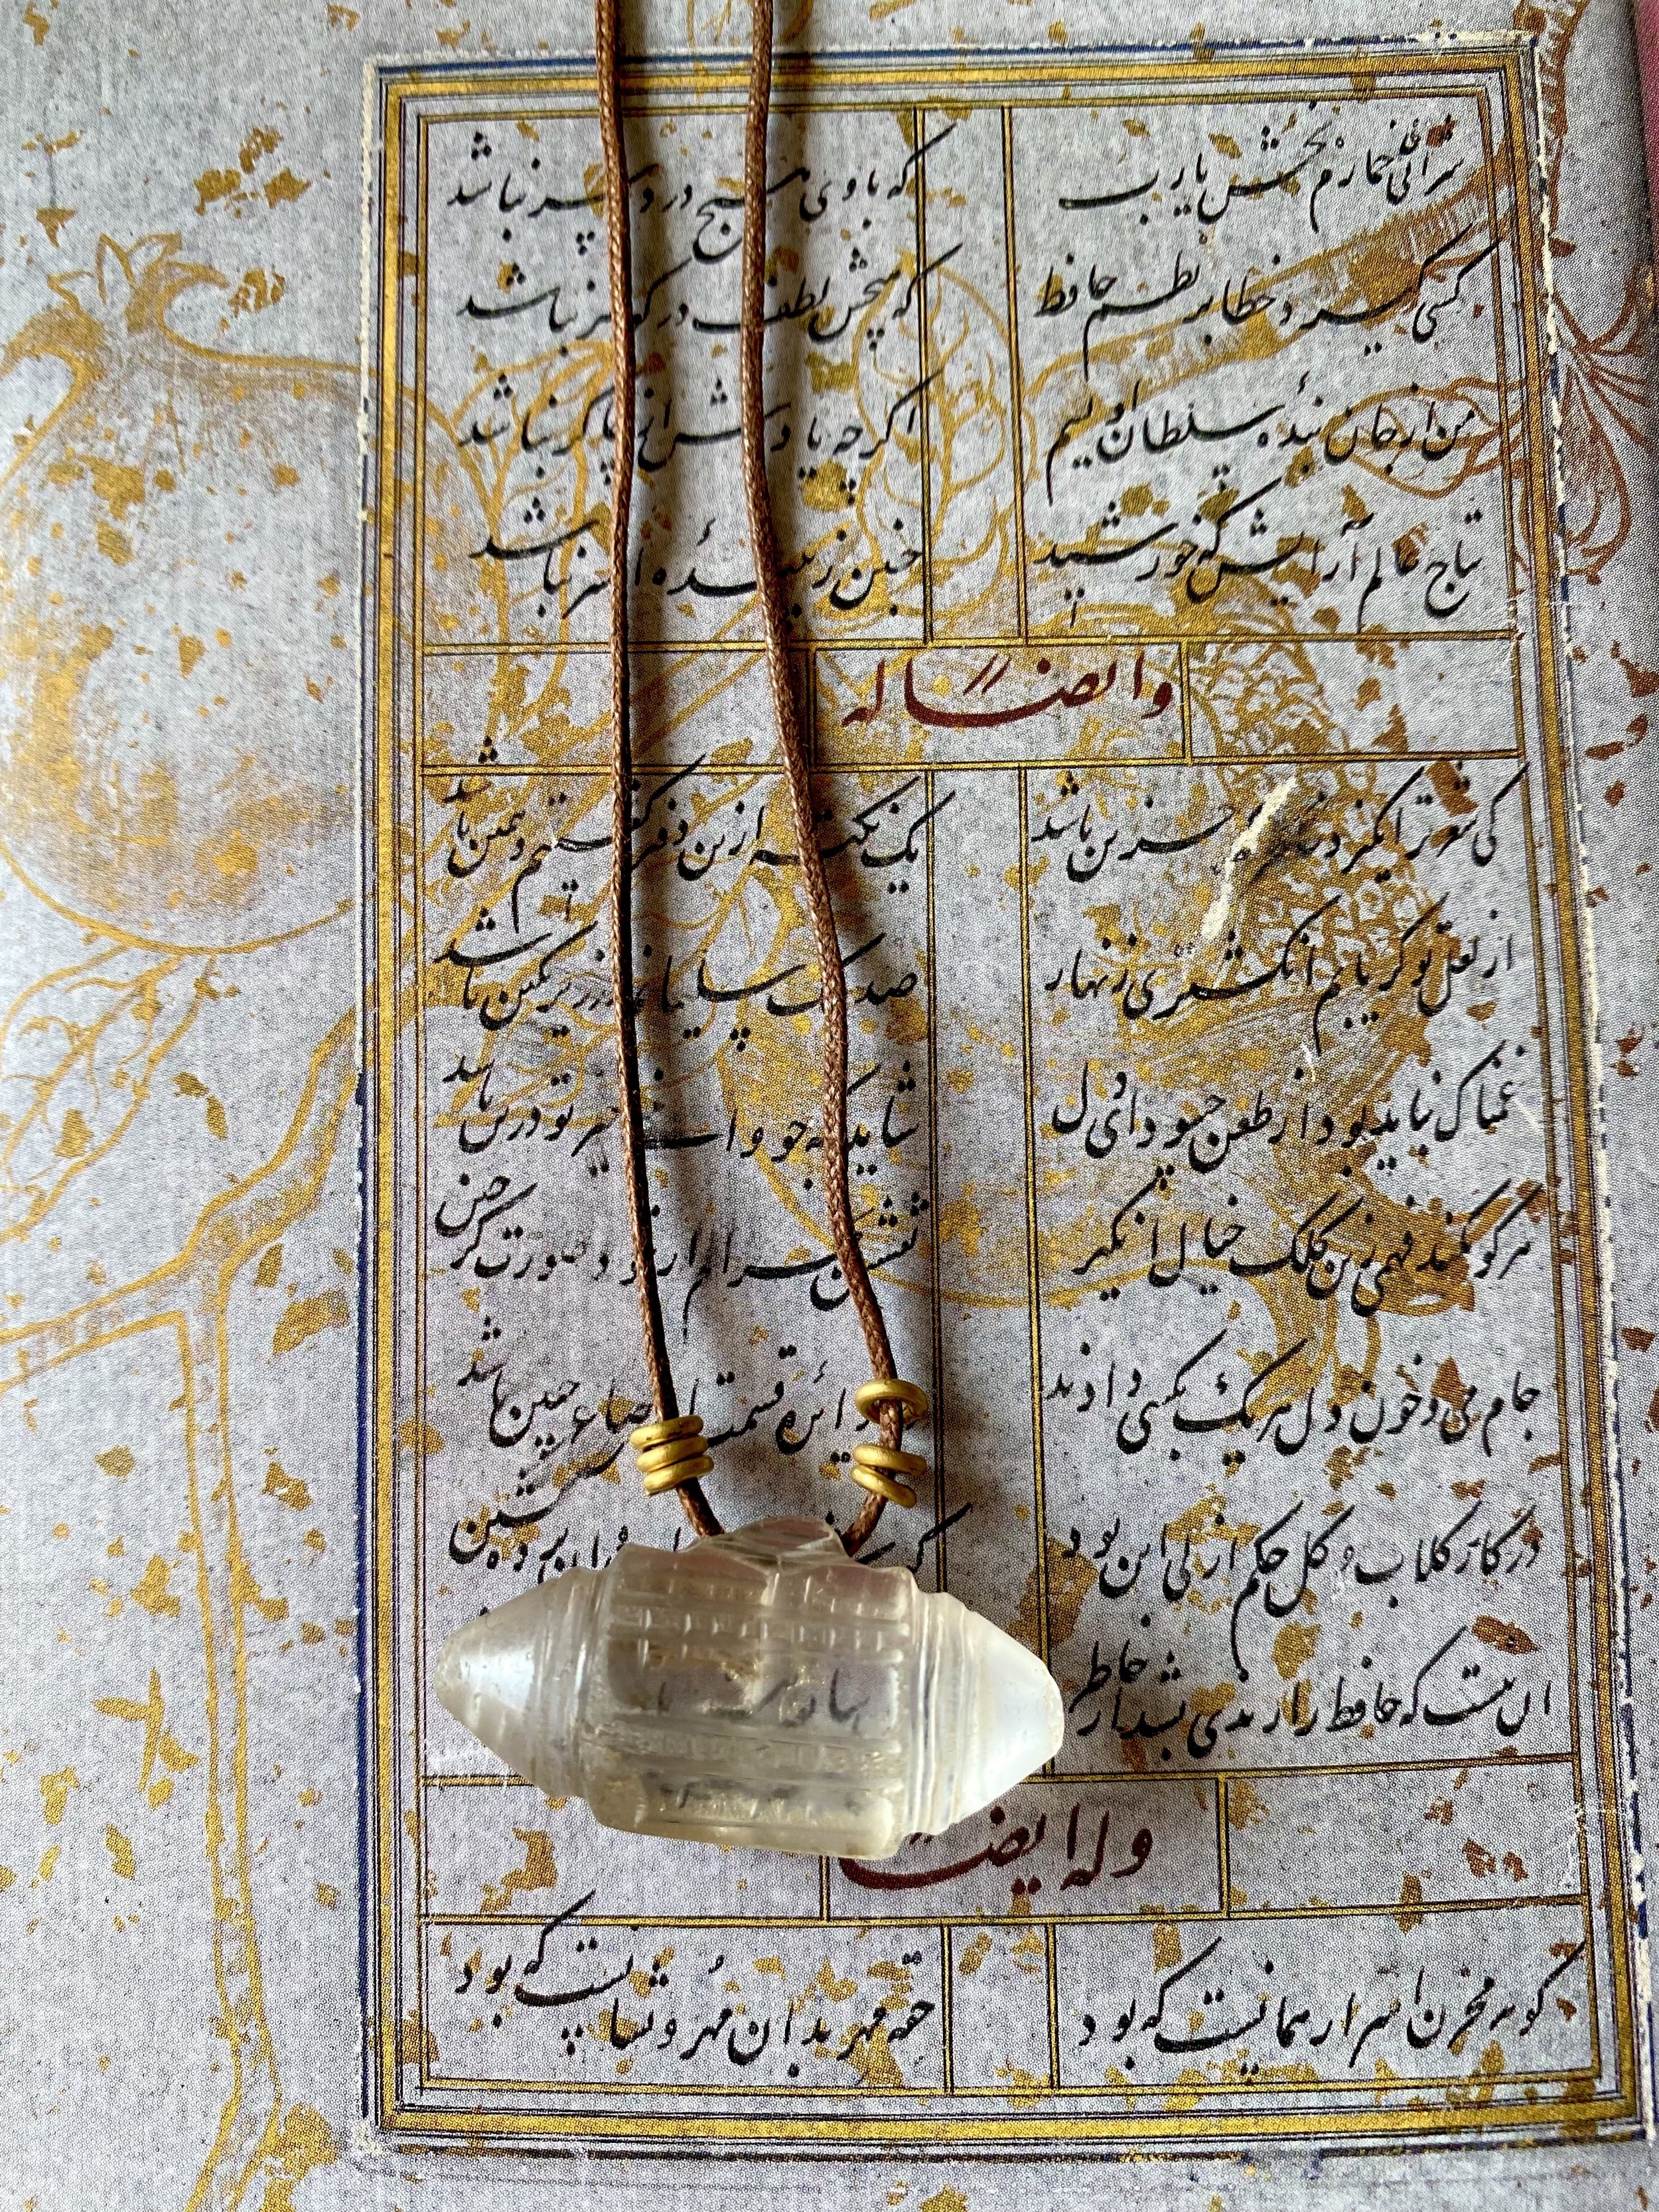 شرابی خمارم بخش یارب که با وی هیچ درد سر نباشد
کسی گیرد خطا بر نظم حافظ که هیچش لطف در گوهر نباشد
من از جان بندهٔ سلطان اویسم اگرچه یادش از چاکر نباشد
بتاج عالم آرایش که خورشید چنین زیبندهٔ افسر نباشد
وایضاً له
کی شعر تر انگیزد خاطر که حزین باشد یک نکته ازین دفتر گفتیم و همین باشد
از لعل تو گر یابم انگشتری زنهار صد ملک سلیمانم در زیر نگین باشد
غمناک نباید بود از طعن حسود ای دل شاید که چو وا خیر تو درین باشد
هرکو نکند فهمی زین کلک خیال انگیز نقشش بحرام ار خود صورت گر چین
جام می و خون دل هر یک بکسی دادند دائره قسمت اوضاع چنین باشد
در کار گلاب و گل حکم ازلی این بود کین پرده نشین
آن نیست که حافظ را رندی بشد از خاطر
وله ایضاً
گوهر مخزن اسرار همانست که بود حقه مهر بدان مُهر و نشانست که بود